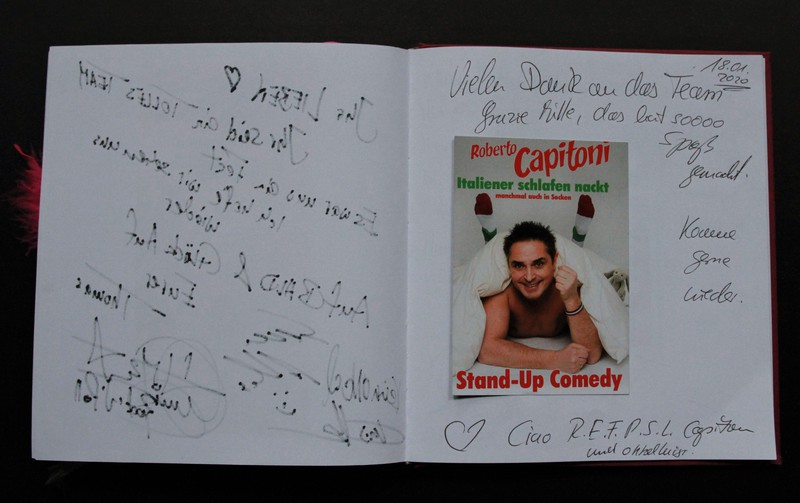 Ihr LIEBEN ♡
Ihr seid ein TOLLES TEAM
Es war uns ein Fest
Ich hoffe wir sehen uns
wieder
Auf BALD & Glück Auf
Euer
Thomas
18.01.
2020
Vielen Dank an das Team
Grazie Mille, das hat soooo
Spaß
gemacht.
Komme
gerne
wieder.
Roberto Capitoni
Italiener schlafen nackt
manchmal auch in Socken
Stand-Up Comedy
♡ Ciao R.E.F.P.S.L. Capitoni
und